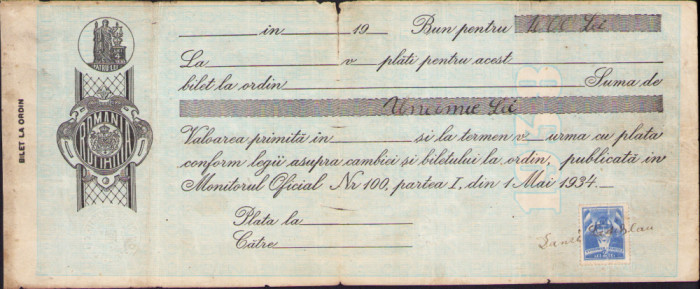 BILET LA ORDIN
PATRU LEI
ROMANIA
in 19 Bun pentru 1000 Lei
La v plăti pentru acest
bilet la ordin Suma de
Unamie Lei
Valoarea primită in și la termen v urma cu plata
conform legii asupra cambiei și biletului la ordin, publicată in
Monitorul Oficial Nr 100, partea I, din 1 Mai 1934.
Plata la
Către
1938